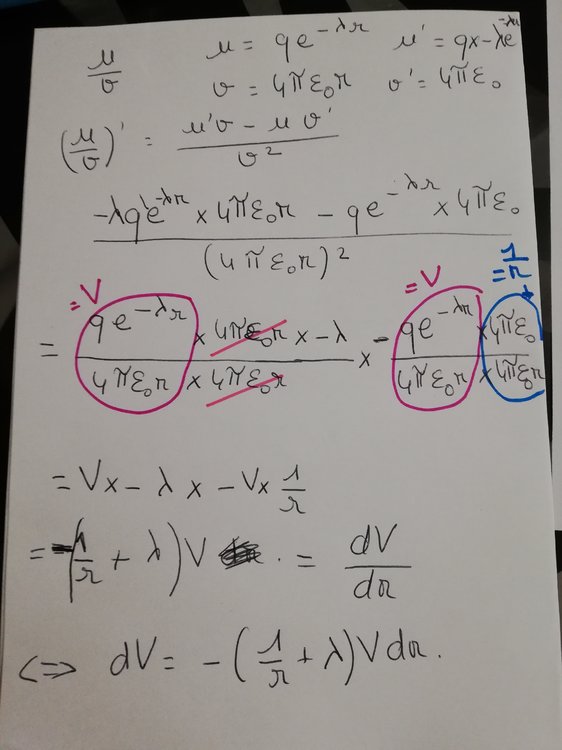 u/v   u = qe^{-λr}   u' = qx-λe^{-λr}
v = 4πε₀r   v' = 4πε₀
(u/v)' = (u'v - uv')/v²
(-λqe^{-λr} × 4πε₀r - qe^{-λr} × 4πε₀)/(4πε₀r)²
=V   =V   =1/r
= (qe^{-λr} × 4πε₀r × -λ)/(4πε₀r × 4πε₀r) × -(qe^{-λr} × 4πε₀)/(4πε₀r × 4πε₀r)
= V× -λ × -V× 1/r
= -(1/r + λ)V . = dV/dr
<=> dV = -(1/r + λ)Vdr.